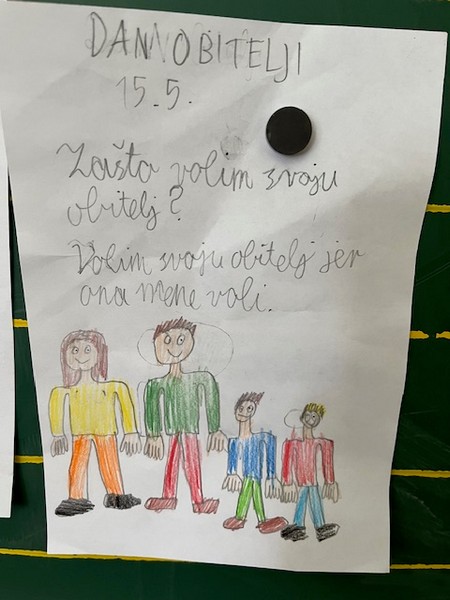 DAN OBITELJI
15.5.
Zašto volim svoju
obitelj?
Volim svoju obitelj jer
ona mene voli.